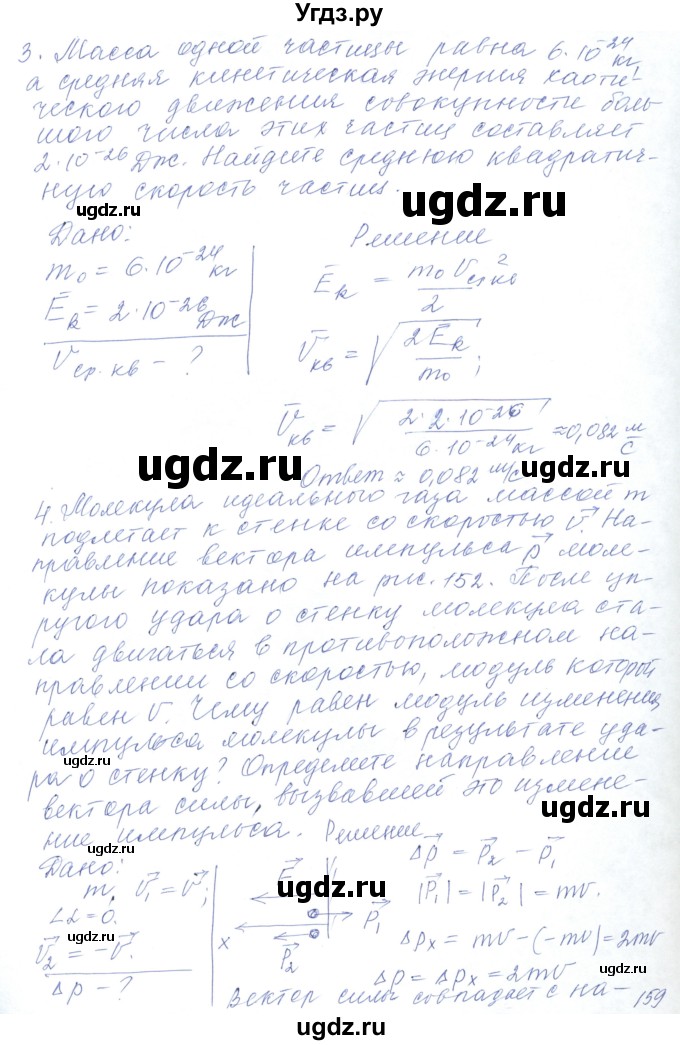 Угдз.ру
3. Масса одной частицы равна 6·10⁻²⁴ кг,
а средняя кинетическая энергия хаоти-
ческого движения совокупности боль-
шого числа этих частиц составляет
2·10⁻²⁶ Дж. Найдите среднюю квадратич-
ную скорость частиц.
ugdz.ru ugdz.ru
Дано: Решение
m₀ = 6·10⁻²⁴ кг
Ē_k = m₀ V_ср.кв² / 2
Ē_k = 2·10⁻²⁶ Дж
V_ср.кв – ?
V̄_кв = √(2Ē_k / m₀);
ugdz.ru ugdz.ru
V̄_кв = √(2·2·10⁻²⁶ / 6·10⁻²⁴ кг) ≈ 0,082 м/с
Ответ ≈ 0,082 м/с
ugdz.ru ugdz.ru
4. Молекула идеального газа массой m
подлетает к стенке со скоростью v⃗. На-
правление вектора импульса p⃗ моле-
кулы показано на рис. 152. После уп-
ругого удара о стенку молекула ста-
ла двигаться в противоположном на-
правлении со скоростью, модуль которой
равен v. Чему равен модуль изменения
импульса молекулы в результате уда-
ра о стенку? Определите направление
вектора силы, вызвавшей это измене-
ние импульса. Решение
ugdz.ru ugdz.ru
ugdz.ru ugdz.ru
ugdz.ru ugdz.ru
Дано:
Δp⃗ = p⃗₂ – p⃗₁
m, v⃗₁ = v⃗;
F⃗
|p⃗₁| = |p⃗₂| = mv.
∠α = 0.
x
p⃗₁
v⃗₂ = –v⃗.
p⃗₂
Δpₓ = mv – (–mv) = 2mv
Δp – ?
Δp = Δpₓ = 2mv
Вектор силы совпадает с на- 159
ugdz.ru ugdz.ru
ugdz.ru ugdz.ru
ugdz.ru